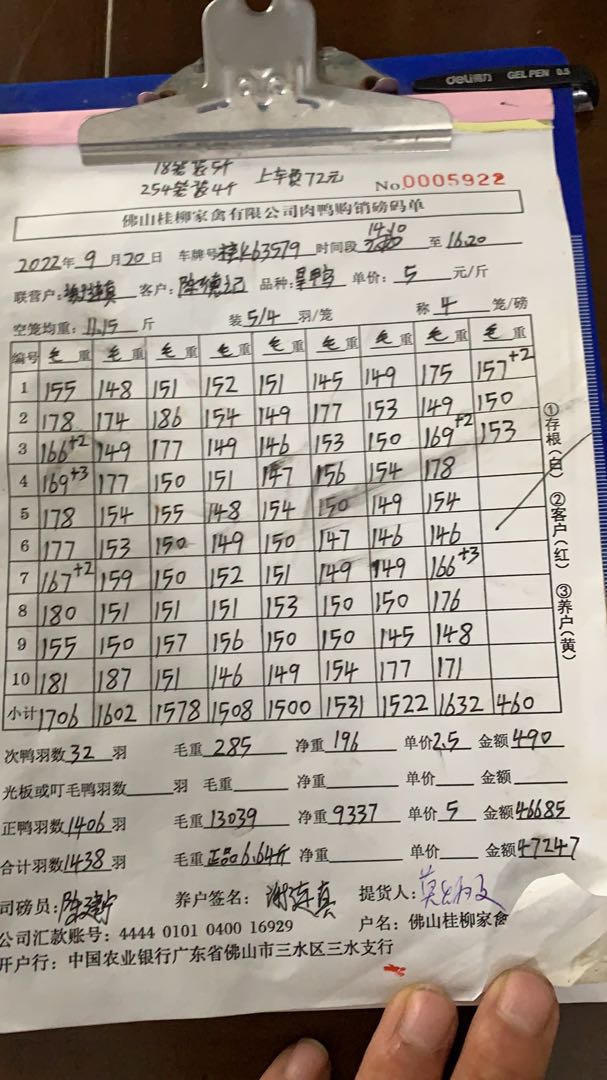 deli得力 GEL PEN 0.5
18笼装5个
254笼装4个 上车费72元
No.0005922
佛山桂柳家禽有限公司肉鸭购销磅码单
2022年9月20日 车牌号 K63579 时间段 14.10 至16.20
联营户: 谢连真 客户: 陈德记 品种: 单价: 5 元/斤
空笼均重: 11.15 斤 装 5/4 羽/笼 称 4 笼/磅
编号 毛重 毛重 毛重 毛重 毛重 毛重 毛重 毛重 毛重
1 155 148 151 152 151 145 149 175 157+2
2 178 174 186 154 149 177 153 149 150
3 166+2 149 177 149 146 153 150 169+2 153
4 169+3 177 150 151 147 156 154 178
5 178 154 155 148 154 150 149 154
6 177 153 150 149 150 147 146 146
7 167+2 159 150 152 151 149 149 166+3
8 180 151 151 151 153 150 150 176
9 155 150 157 156 150 150 145 148
10 181 187 151 146 149 154 177 171
小计 1706 1602 1578 1508 1500 1531 1522 1632 460
①存根(白) ②客户(红) ③养户(黄)
次鸭羽数 32 羽 毛重 285 净重 196 单价 2.5 金额 490
光板或叮毛鸭羽数 羽 毛重 净重 单价 金额
正鸭羽数 1406 羽 毛重 13039 净重 9337 单价 5 金额 46685
合计羽数 1438 羽 毛重 正品6.64斤 净重 单价 金额 47247
司磅员: 陈建宁 养户签名: 谢连真 提货人:
公司汇款账号: 4444 0101 0400 16929 户名: 佛山桂柳家禽
开户行: 中国农业银行广东省佛山市三水区三水支行